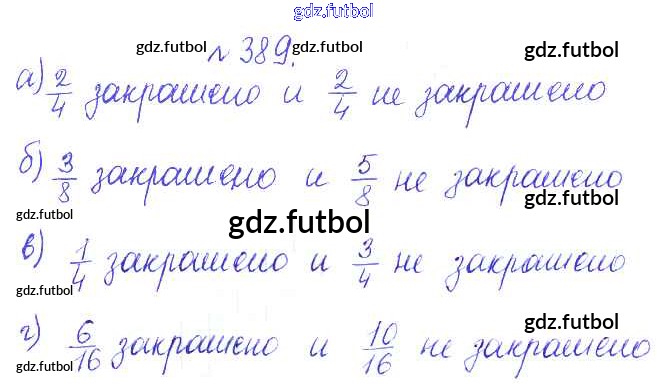 gdz.futbol
gdz.futbol № 389. gdz.futbol gdz.futbol
а) 2/4 закрашено и 2/4 не закрашено
б) 3/8 закрашено и 5/8 не закрашено
gdz.futbol gdz.futbol gdz.futbol
в) 1/4 закрашено и 3/4 не закрашено
gdz.futbol gdz.futbol
г) 6/16 закрашено и 10/16 не закрашено
gdz.futbol gdz.futbol